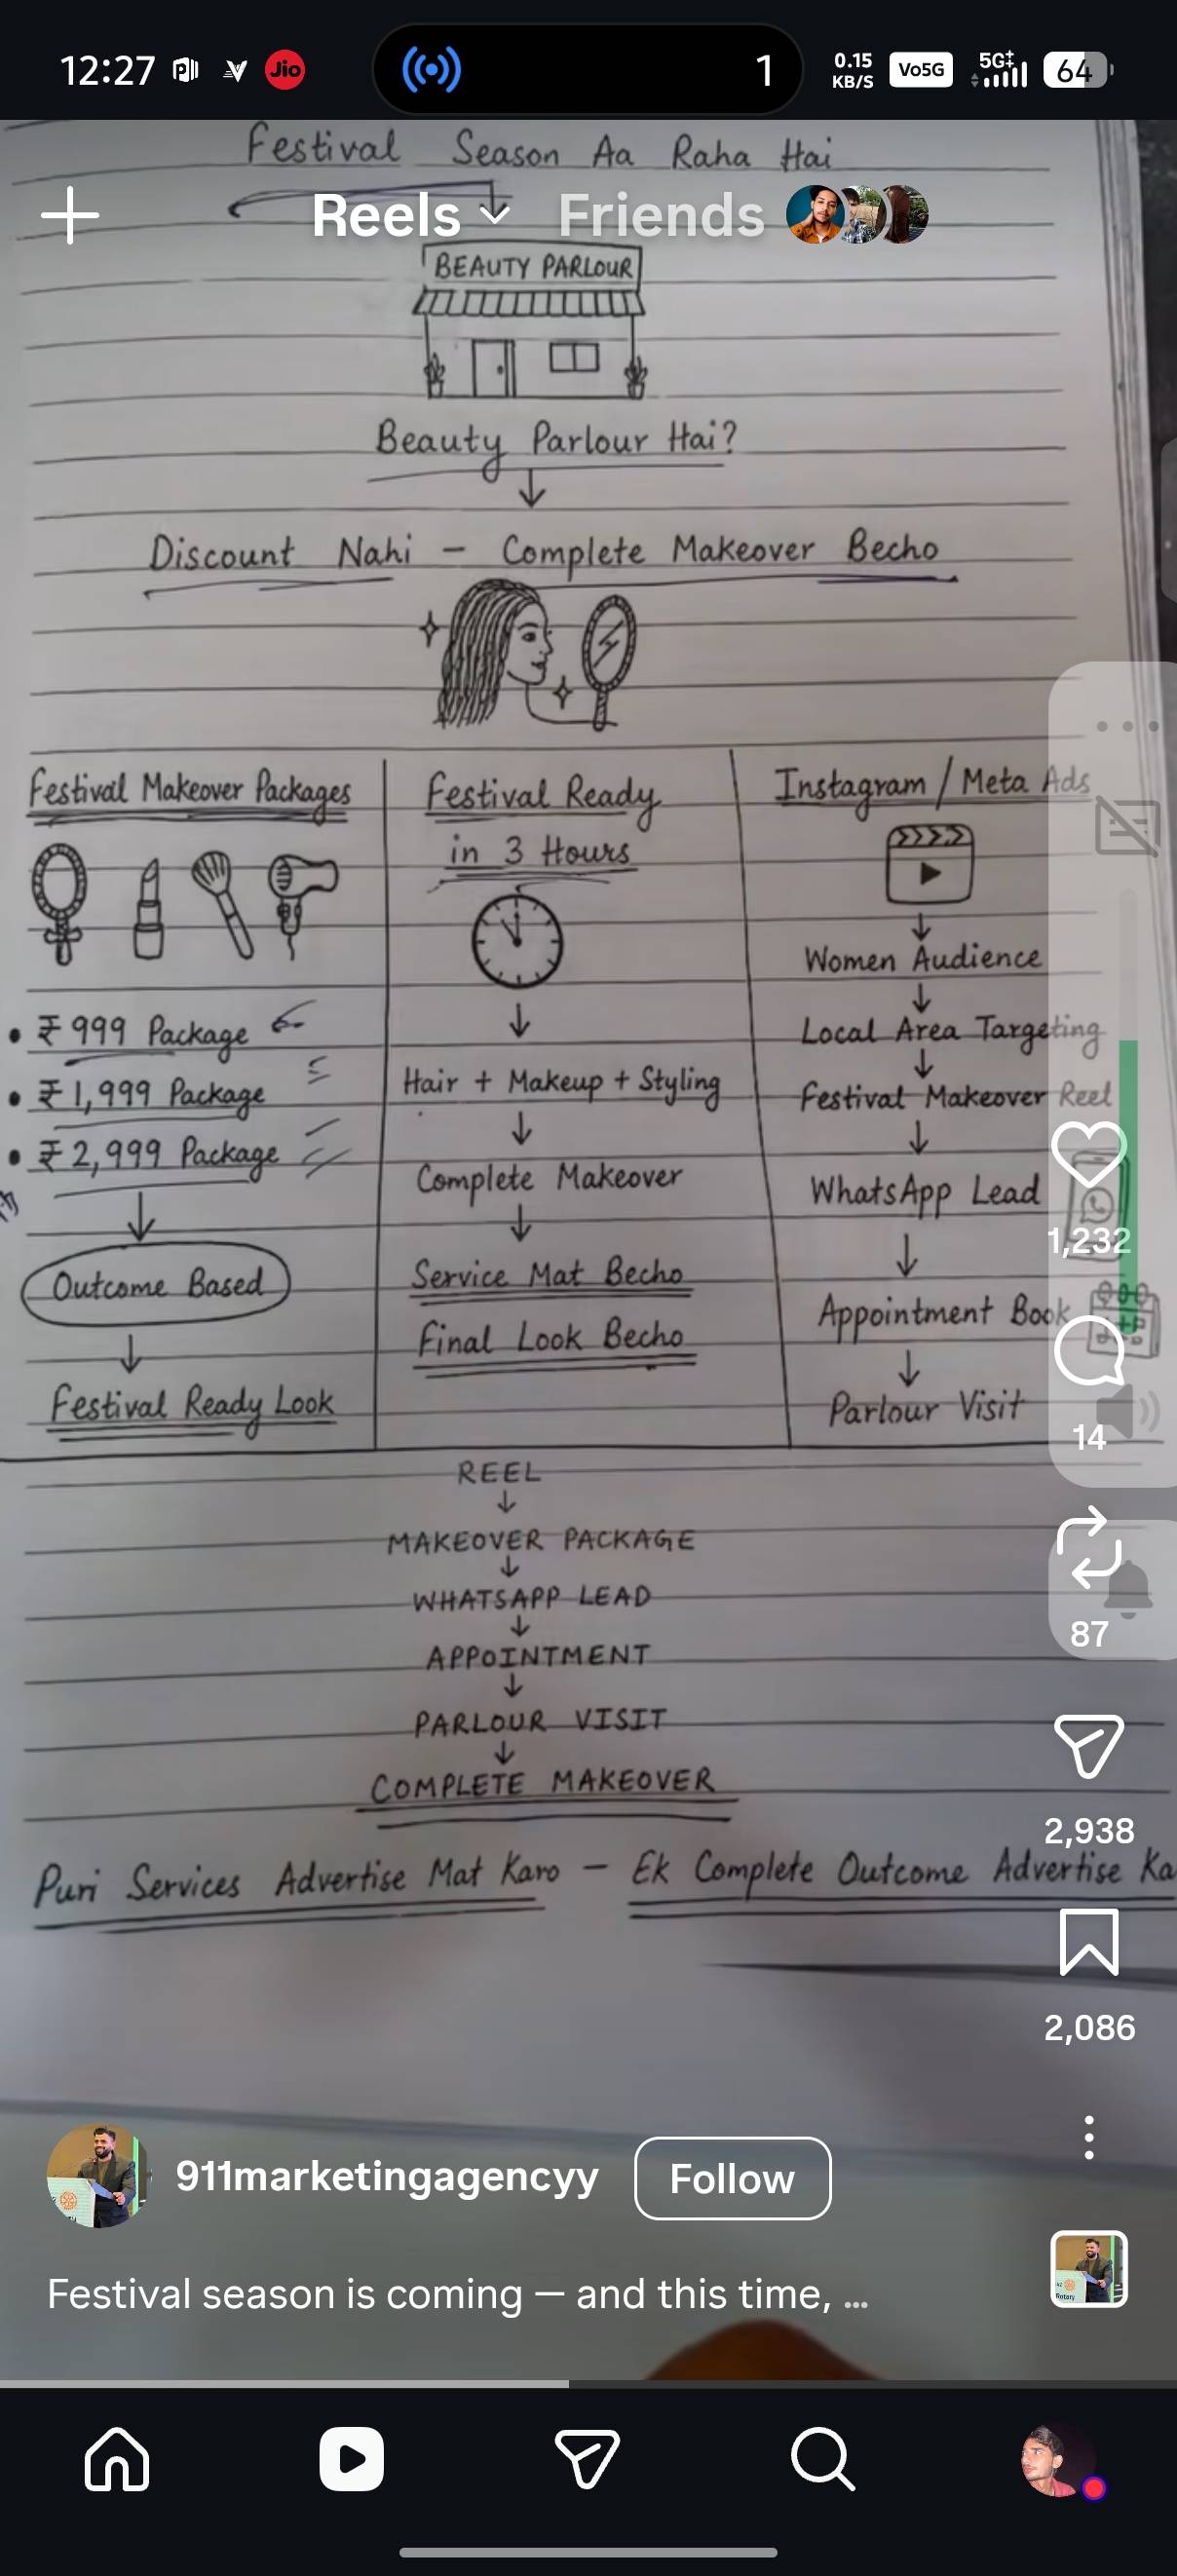 12:27
Jio
1
0.15
KB/S
Vo5G
5G
64
Festival Season Aa Raha Hai
Reels Friends
BEAUTY PARLOUR
Beauty Parlour Hai?
Discount Nahi - Complete Makeover Becho
Festival Makeover Packages
• ₹999 Package
• ₹1,999 Package
• ₹2,999 Package
Outcome Based
Festival Ready Look
Festival Ready
in 3 Hours
Hair + Makeup + Styling
Complete Makeover
Service Mat Becho
Final Look Becho
Instagram / Meta Ads
Women Audience
Local Area Targeting
Festival Makeover Reel
WhatsApp Lead
Appointment Book
Parlour Visit
REEL
MAKEOVER PACKAGE
WHATSAPP LEAD
APPOINTMENT
PARLOUR VISIT
COMPLETE MAKEOVER
Puri Services Advertise Mat Karo - Ek Complete Outcome Advertise Ka
1,232
14
87
2,938
2,086
911marketingagencyy
Follow
Festival season is coming — and this time, ...